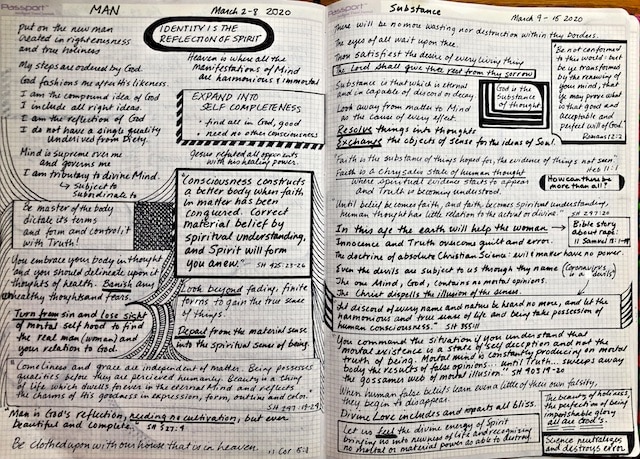 Passport
MAN
March 2-8 2020
put on the new man
created in righteousness
and true holiness
My steps are ordered by God.
God fashions me after His likeness.
I am the compound idea of God
I include all right ideas.
I am the reflection of God
I do not have a single quality
underived from Diety.
Mind is supreme over me
and governs me
I am tributary to divine Mind.
↳ subject to
subordinate to
Be master of the body
dictate its terms
and form and control it
with Truth!
You embrace your body in thought
and you should delineate upon it
thoughts of health. Banish any
unhealthy thoughts and fears.
Turn from sin and lose sight
of mortal selfhood to find
the real man (woman) and
your relation to God.
IDENTITY IS THE
REFLECTION OF SPIRIT
Heaven is where all the
Manifestations of Mind
are harmonious & immortal
EXPAND INTO
SELF COMPLETENESS
• find all in God, good
• need no other consciousness
Jesus refuted all opponents
with his healing power.
"Consciousness constructs
a better body when faith
in matter has been
conquered. Correct
material belief by
spiritual understanding,
and Spirit will form
you anew." SH 425:23-26
Look beyond fading, finite
forms to gain the true sense
of things.
Depart from the material sense
into the spiritual sense of being.
"Comeliness and grace are independent of matter. Being possesses
qualities before they are perceived humanly. Beauty is a thing
of life which dwells forever in the eternal Mind and reflects
the charms of His goodness in expression, form, outline and color."
SH 247:19-24
"Man is God's reflection, needing no cultivation, but ever
beautiful and complete." SH 527:4
Be clothed upon with our house that is in heaven.
II Cor 5:2
Passport
Substance
March 9-15 2020
There will be no more wasting nor destruction within thy borders.
The eyes of all wait upon thee.
Thou satisfiest the desire of every living thing
The Lord shall give thee rest from thy sorrow
Substance is that which is eternal
and incapable of discord or decay
Look away from matter to Mind
as the cause of every effect.
Resolve things into thoughts
Exchange the objects of sense for the ideas of Soul.
God is the
Substance
of thought.
"Be not conformed
to this world: but
be ye transformed
by the renewing of
your mind, that
ye may prove what
is that good and
acceptable and
perfect will of God."
Romans 12:2
Faith is the substance of things hoped for, the evidence of things not seen.
Heb 11:1
Faith is a chrysalis state of human thought
where spiritual evidence starts to appear
and Truth is becoming understood.
How can there be
more than all?
Until belief becomes faith, and faith becomes spiritual understanding,
human thought has little relation to the actual or divine."
SH 297:20
In this age the earth will help the woman →
Bible story
about rape:
II Samuel 13:1-19
Innocence and Truth overcome guilt and error.
The doctrine of absolute Christian Science: evil & matter have no power.
Even the devils are subject to us through thy name
(Coronavirus
is a devil)
The one Mind, God, contains no mortal opinions.
The Christ dispells the illusion of the sense.
"At discord of every name and nature be heard no more, and let the
harmonious and true sense of life and being take possession of
human consciousness." SH 355:11
You command the situation if you understand that
mortal existence is a state of self deception and not the
truth of being. Mortal mind is constantly producing on mortal
body the results of false opinions... until Truth... sweeps away
the gossamer web of mortal illusion." SH 403:14-20
When human false beliefs learn even a little of their own falsity,
they begin to disappear.
Divine Love includes and imparts all bliss.
Let us feel the divine energy of Spirit
bringing us into newness of life and recognizing
no mortal or material power as able to destroy.
The beauty of holiness,
the perfection of being
imperishable glory
all are God's.
Science neutralizes
and destroys error